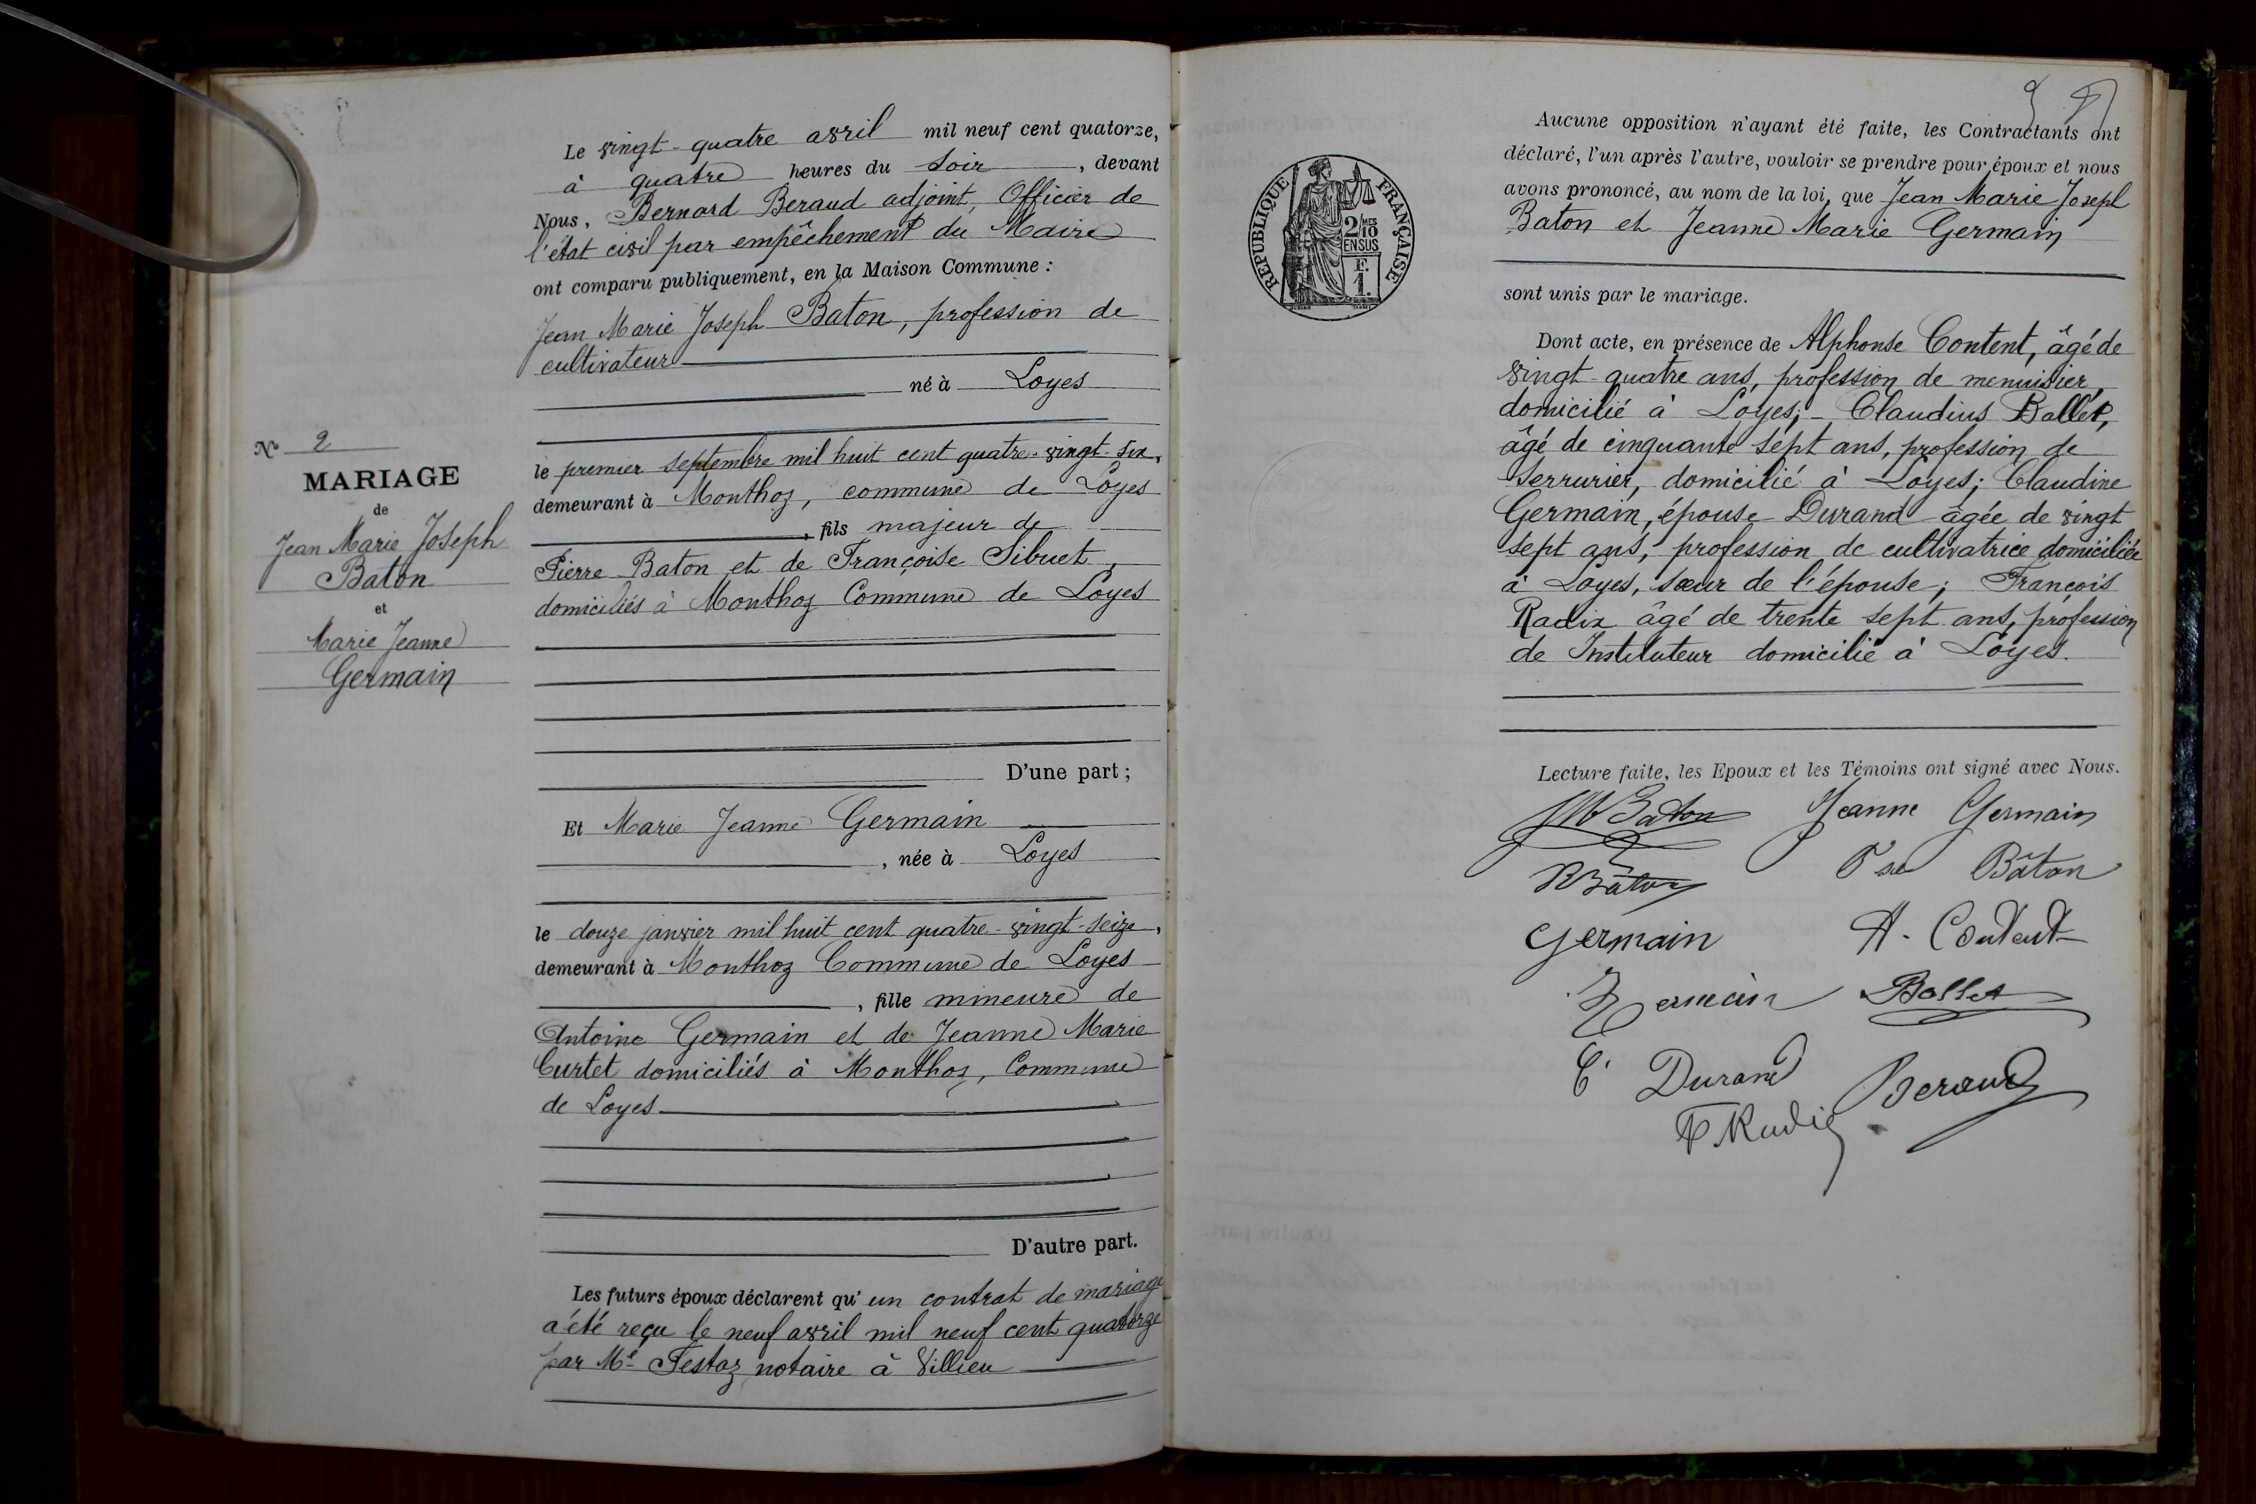 Le vingt-quatre avril mil neuf cent quatorze,
à quatre heures du soir, devant
Nous, Bernard Beraud adjoint, Officier de
l'état civil par empêchement du Maire
ont comparu publiquement, en la Maison Commune :
Jean Marie Joseph Baton, profession de
cultivateur
né à Loyes
le premier septembre mil huit cent quatre-vingt-six,
demeurant à Monthoz, commune de Loyes
, fils majeur de
Pierre Baton et de Françoise Sibuet,
domiciliés à Monthoz Commune de Loyes
D'une part ;
Et Marie Jeanne Germain
, née à Loyes
le douze janvier mil huit cent quatre-vingt-seize,
demeurant à Monthoz Commune de Loyes
, fille mineure de
Antoine Germain et de Jeanne Marie
Curtet domiciliés à Monthoz, Commune
de Loyes
D'autre part.
Les futurs époux déclarent qu'un contrat de mariage
a été reçu le neuf avril mil neuf cent quatorze
par Me Festaz notaire à Villieu
No 2
MARIAGE
de
Jean Marie Joseph
Baton
et
Marie Jeanne
Germain
RÉPUBLIQUE FRANÇAISE
2/10 MES
EN SUS
F.
1.
Aucune opposition n'ayant été faite, les Contractants ont
déclaré, l'un après l'autre, vouloir se prendre pour époux et nous
avons prononcé, au nom de la loi, que Jean Marie Joseph
Baton et Jeanne Marie Germain
sont unis par le mariage.
Dont acte, en présence de Alphonse Content, âgé de
vingt-quatre ans, profession de menuisier,
domicilié à Loyes; - Claudius Ballet,
âgé de cinquante sept ans, profession de
serrurier, domicilié à Loyes; Claudine
Germain, épouse Durand âgée de vingt
sept ans, profession de cultivatrice domiciliée
à Loyes, sœur de l'épouse; François
Radix âgé de trente sept ans, profession
de Instituteur domicilié à Loyes.
Lecture faite, les Epoux et les Témoins ont signé avec Nous.
JM Baton Jeanne Germain
Bâton Fse Bâton
Germain A. Content
Germain Ballet
C. Durand Beraud
F. Radix